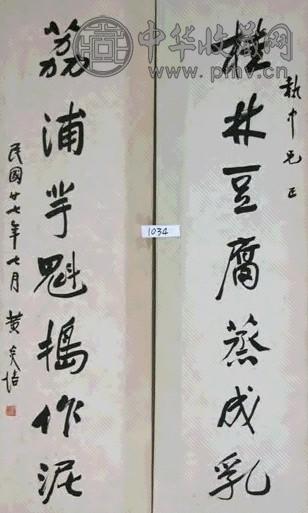 桂林豆腐蒸成乳
執中兄正
荔浦芋魁搗作泥
民國廿七年七月 黄炎培
1034
中华收藏网
www.pmv.cn